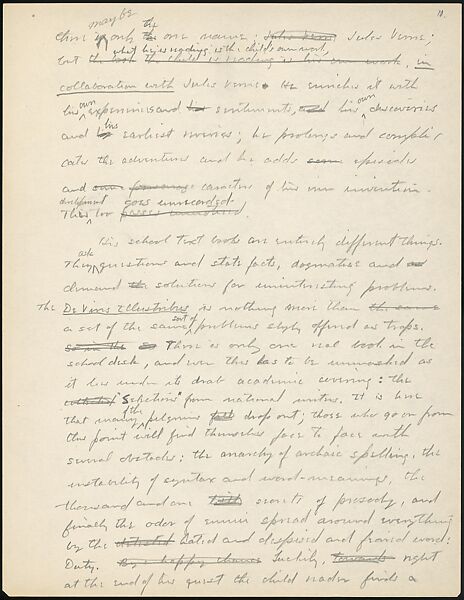 11.
may be the
there is only the one name: Jules Verne; Jules Verne;
what he is reading is the child's own work,
but the last the child is reading is his own work, in
collaboration with Jules Verne. He enriches it with
his own experiences and his sentiments, and his own discoveries
and his earliest reveries; he prolongs and compli-
cates the adventures and he adds some episodes
and some personage caracters of his own invention.
development goes unrecorded
This too passes unnoticed.
His school text books are entirely different things.
They ask questions and state facts, dogmatise and
demand the solutions for uninteresting problems.
The De Viris Illustribus is nothing more than the same
a set of the same sort of problems slyly offered as traps.
so in the so There is only one real book in the
school desk, and even this has to be unmasked as
it lies under its drab academic covering: the
"Selections" from national writers. It is here
that many of the pilgrims fall drop out; those who go on from
this point will find themselves face to face with
several obstacles: the anarchy of archaic spelling, the
instability of syntax and word-meanings, the
thousand and one secrets of prosody, and
finally the odor of ennui spread around everything
by the hated and despised and praised word:
Duty. By happy chance Luckily, towards right
at the end of his quest the child reader finds a